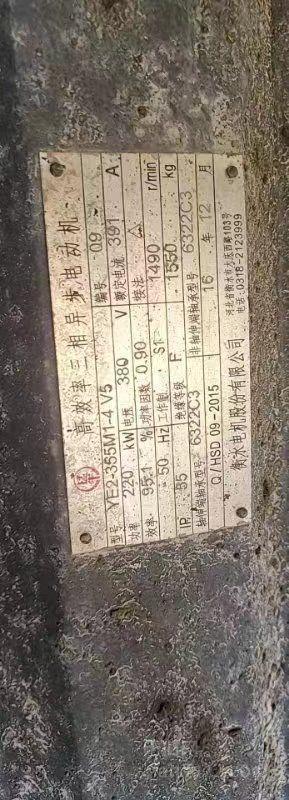 高效率三相异步电动机
型号 YE2-355M1-4 V5 编号 09
功率 220 KW 电压 380 V 额定电流 391 A
效率 95.1 % 功率因数 0.90 接法 △ 1490 r/min
50 Hz 工作制 S1 1550 kg
IP 55 绝缘等级 F
轴伸端轴承型号: 6322C3 非轴伸端轴承型号 6322C3
Q/HSD 09-2015 16 年 12 月
衡水电机股份有限公司 河北省衡水市大庆西路103号
电话:0318-2123999